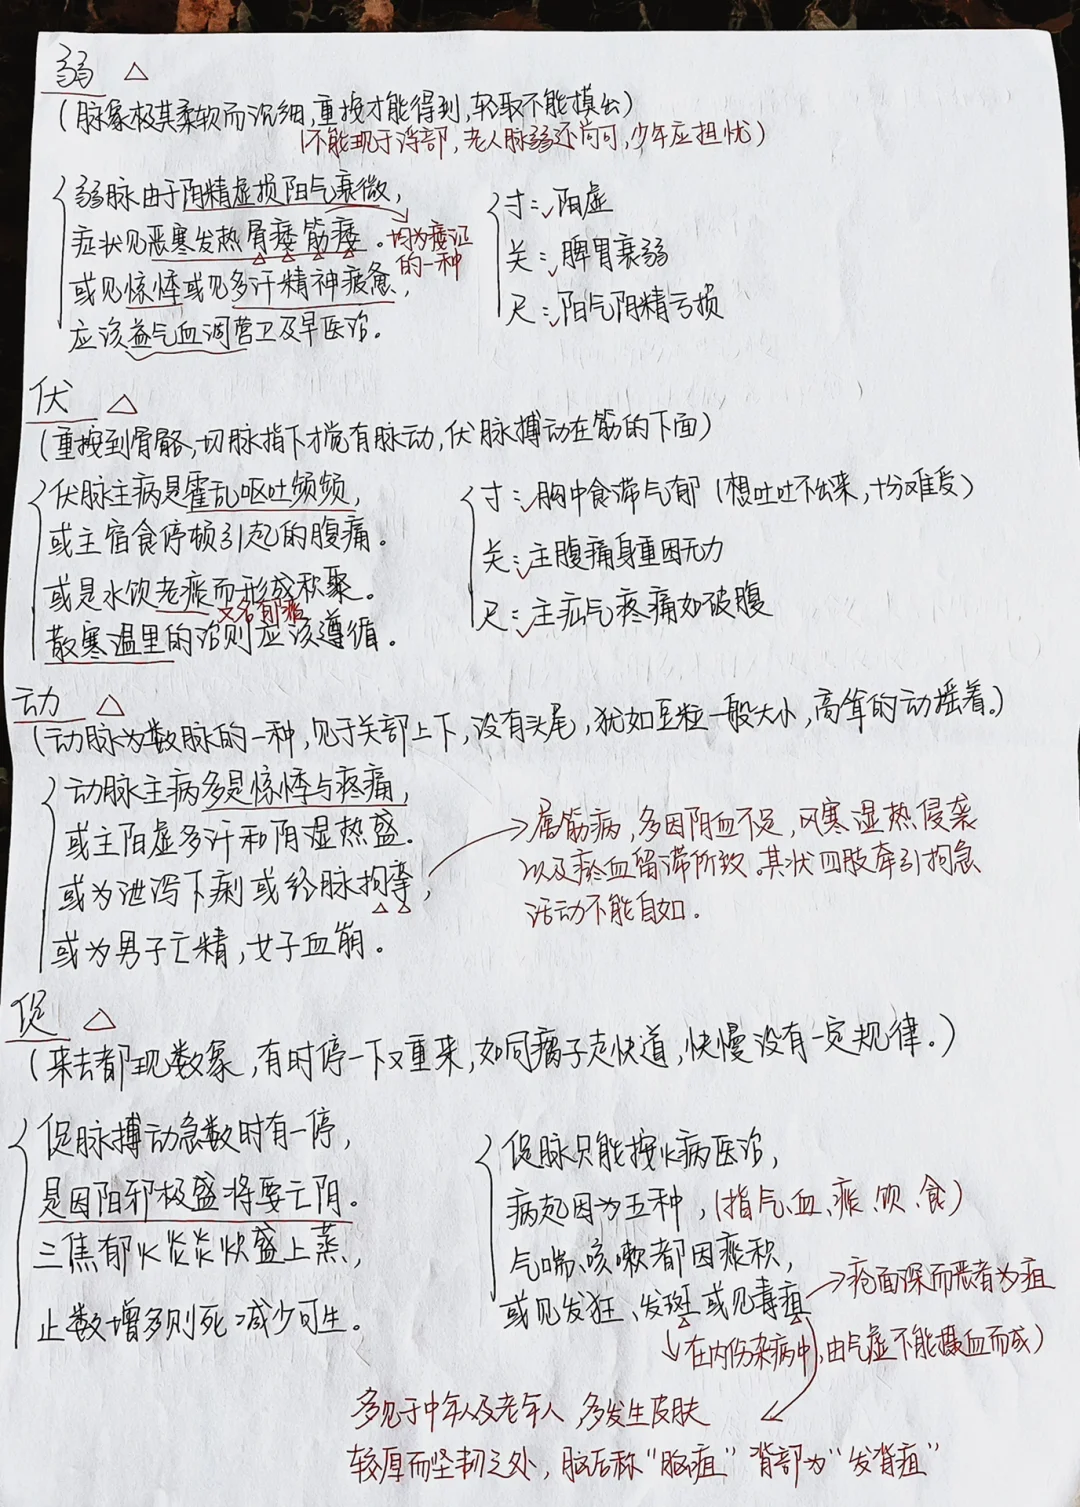 弱 △
(脉象极其柔软而沉细,重按才能得到,轻取不能摸出)
(不能现于浮部,老人脉弱还尚可,少年应担忧)
弱脉由于阴精虚损阳气衰微,
症状见恶寒发热骨痿筋痿.
均为痿证的一种
或见惊悸或见多汗精神疲惫,
应该益气血调营卫及早医治。
寸:阳虚
关:脾胃衰弱
尺:阳气阴精亏损
伏 △
(重按到骨骼,切脉指下才觉有脉动,伏脉搏动在筋的下面)
伏脉主病是霍乱呕吐频频,
或主宿食停顿引起的腹痛。
或是水饮老痰而形成积聚。
又名郁痰
散寒温里的治则应该遵循。
寸:胸中食滞气郁(想吐吐不出来,十分难受)
关:主腹痛身重困无力
尺:主疝气疼痛如破腹
动 △
(动脉为数脉的一种,见于关部上下,没有头尾,犹如豆粒一般大小,高耸的动摇着。)
动脉主病多是惊悸与疼痛,
或主阳虚多汗和阴湿热盛.
或为泄泻下痢或经脉拘挛,
或为男子亡精,女子血崩.
属筋病,多因阴血不足,风寒湿热侵袭
以及瘀血留滞所致.其状四肢牵引拘急
活动不能自如.
促 △
(来去都现数象,有时停一下又重来,如同瘸子走快道,快慢没有一定规律。)
促脉搏动急数时有一停,
是因阳邪极盛将要亡阴.
三焦郁火炎炎炽盛上蒸,
止数增多则死减少可生.
促脉只能按火病医治,
病起因为五种,(指气、血、痰、饮、食)
气喘、咳嗽都因痰积,
或见发狂、发斑或见毒疽
疮面深而恶者为疽
在内伤杂病中,由气虚不能摄血而成)
多见于中年人及老年人,多发生皮肤
较厚而坚韧之处,脑后称“脑疽”背部为“发背疽”